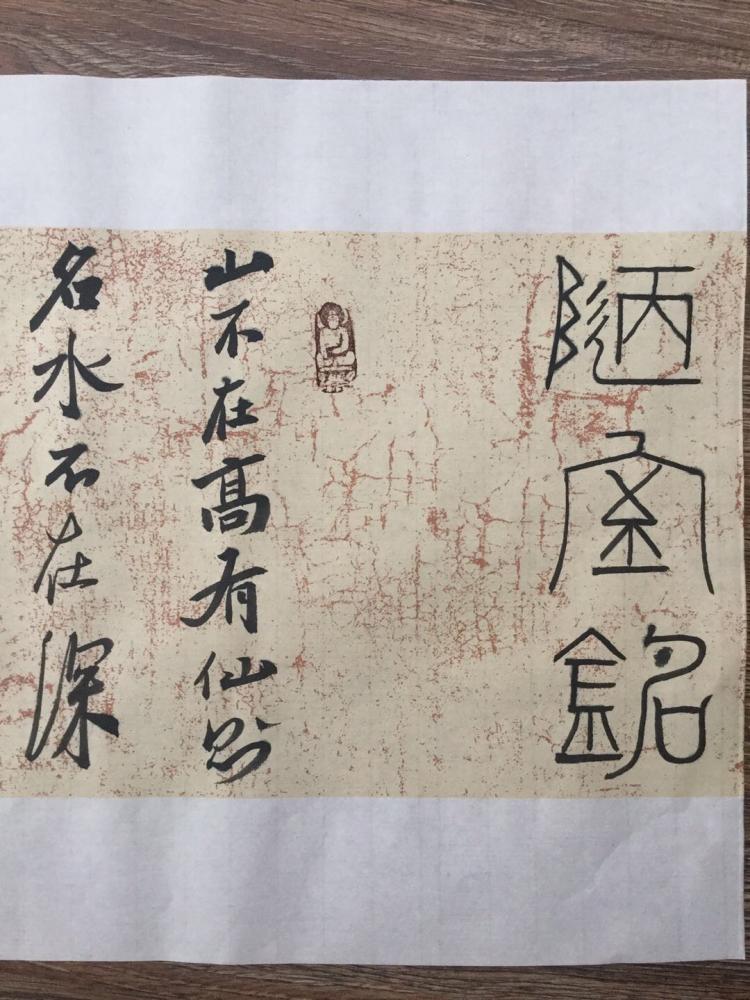 陋室銘
山不在高有仙則
名水不在深